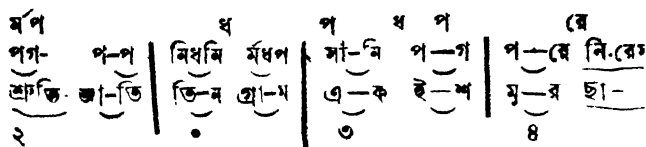 র্ম প ধ প ধ প রে
পগ- প-প | নিধনি র্মধপ | সা-নি প—গ | প—রে নি.রেস
শ্রুতি- জা-তি | তি-ন গ্রা-ম | এ-ক ই-শ | মূ-র ছা-
২ ০ ৩ ৪